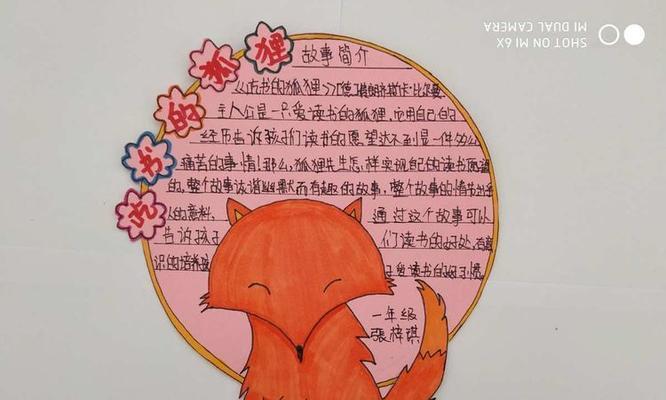 吃书的狐狸
故事简介
《吃书的狐狸》[德]弗朗齐斯卡·比尔曼
主人公是一只爱读书的狐狸,而用自己的
经历告诉孩子们读书的愿望达不到是一件多么
痛苦的事情!那么,狐狸先生怎样实现自己的读书愿望
的,整个故事诙谐幽默而有趣的故事,整个故事的情节出乎
人的意料, 通过这个故事可以
告诉孩子 们读书的好处,有意
识的培养孩 子爱读书的好习惯。
一年级
張梓琪
SHOT ON MI 6X
MI DUAL CAMERA